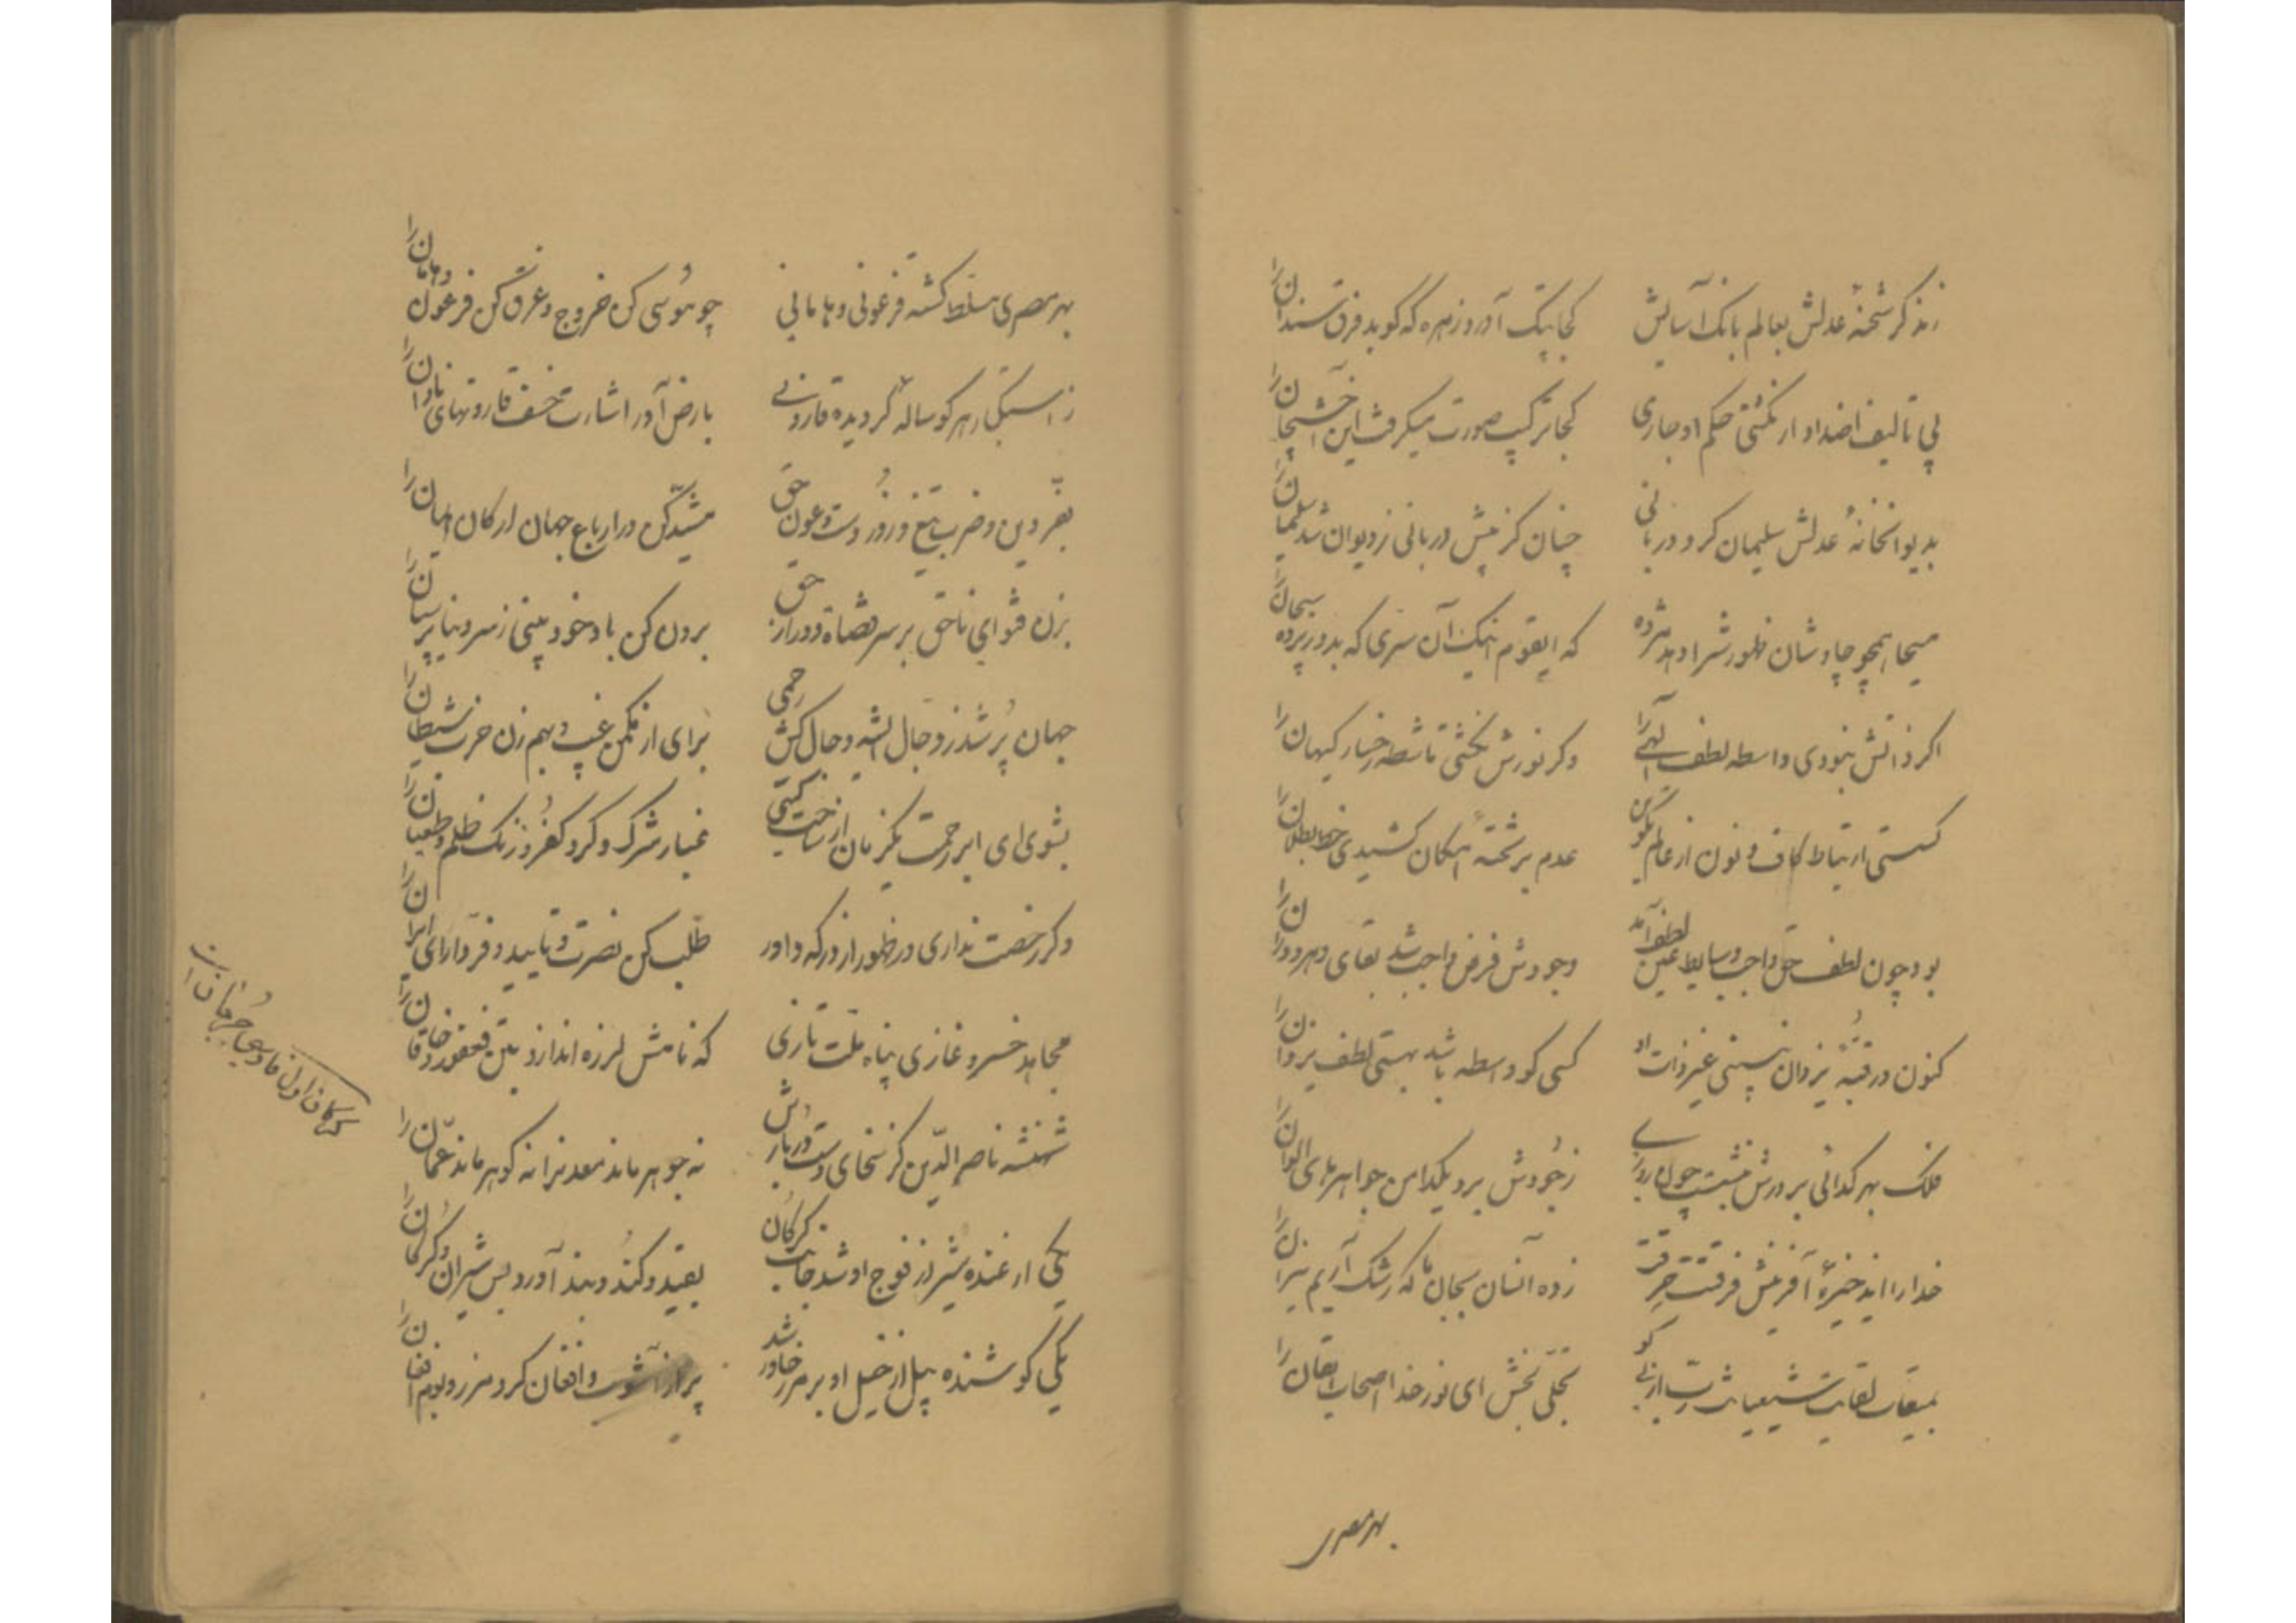 زند گر شحنهٔ عدلش بعالم بانک آسایش
کجا پتک آورد زهره که گوبد فرق سندان را
پی تألیف اضداد ار نکشتی حکم او جاری
کجا ترکیب صورت میکرفت این آخشیجان را
بدیوانخانهٔ عدلش سلیمان کرد دربانی
چنان کز پیش دربانی ز دیوان شد سلیمان را
مسیحا همچو چاوشان ظهورش را دهد مژده
که ایقوم اینک آن سری که بد در پرده سبحان را
اکر ذاتش نبودی واسطه لطف الهی را
وکر نورش نکشتی ماشطه رخسار کیهان را
کسستی ارتباط کاف و نون از عالم تکوین
عدم بر تختهٔ امکان کشیدی خط بطلان را
بود چون لطف حق واجب وسایط عین لطف آمد
وجودش فرض و واجب شد بقای دهر و دوران را
کنون در قبّهٔ یزدان نیستی غیر ذات او
کسی کو واسطه باشد بهستی لطف یزدان را
فلک بهر کدائی بر درش پشت چون
ز جودش برد یکدامن جواهرهای الوان را
خدا را ایذخیرهٔ آفرینش فرقتت حرقت
زده آنسان بجان ما که رشک آریم نیران را
بمیقات لقایت شیعیانت ربّ ارنی کو
تجلّی بخش ای نور خدا اصحاب ایقان را
بهر مصری
بهر مصری مسلط کشته فرعونی و هامانی
چو موسی کن خروج و غرق کن فرعون و هامان را
ز هر کوساله کردیده قارونی
بارض آور اشارت خسف قارونهای نادان را
بفرّ دین و ضرب تیغ و زور دست و عون حق
مشیّد کن در ارباع جهان ارکان ایمان را
بزن فتوای ناحق بر سر قضاة دور از حق
برون کن باد خودبینی ز سر دنیاپرستان را
جهان پُر شد ز دجال ایشه دجال‌کش رحمی
برای از مکمن غیب و بهم زن حزب شیطان را
بشوی ای ابر رحمت یکزمان از ساحت کیتی
غبار شرک و کرد کفر و زنک ظلم و طغیان را
وکر رخصت نداری در ظهور از درکه داور
طلب کن نصرت و تایید و فرّ دارای ایران را
مجاهد خسرو غازی پناه ملّت تازی
که نامش لرزه اندازد بتن فغفور و خاقان را
شهنشه ناصرالدّین کز سخای دست دُربارش
نه جوهر ماند معدنرا نه کوهر ماند عمّان را
یکی ارغنده شیر از فوج او شد جانب کرکان
بقید و کند و بند آورد بس شیران کرکان را
یکی کوشنده پیل از خیل او بر مرز خاور شد
پر از آشوب و افغان کرد مرز و بوم افغان را